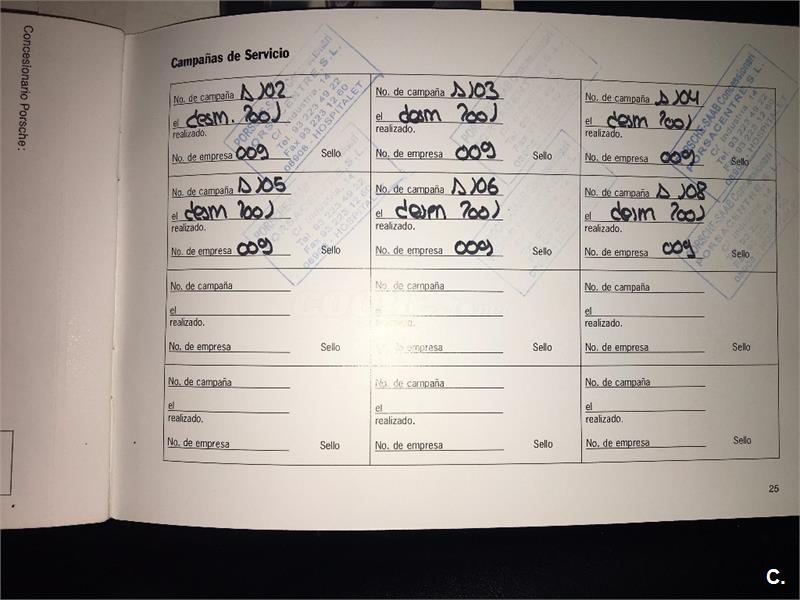 Concesionario Porsche:
Campañas de Servicio
No. de campaña DJ02
el desm. 2001
realizado.
No. de empresa 009 Sello
No. de campaña DJ03
el desm 2001
realizado.
No. de empresa 009 Sello
No. de campaña DJ04
el desm 2001
realizado.
No. de empresa 009 Sello
No. de campaña DJ05
el desm 2001
realizado.
No. de empresa 009 Sello
No. de campaña DJ06
el desm 2001
realizado.
No. de empresa 009 Sello
No. de campaña DJ08
el desm 2001
realizado.
No. de empresa 009 Sello
No. de campaña
el
realizado.
No. de empresa Sello
No. de campaña
el
realizado.
No. de empresa Sello
No. de campaña
el
realizado.
No. de empresa Sello
No. de campaña
el
realizado.
No. de empresa Sello
No. de campaña
el
realizado.
No. de empresa Sello
No. de campaña
el
realizado.
No. de empresa Sello
PORSACENTRE S.L.
Tel. 93 223 49 22
Fax 93 223 12 60
08908 - HOSPITALET
25
C.